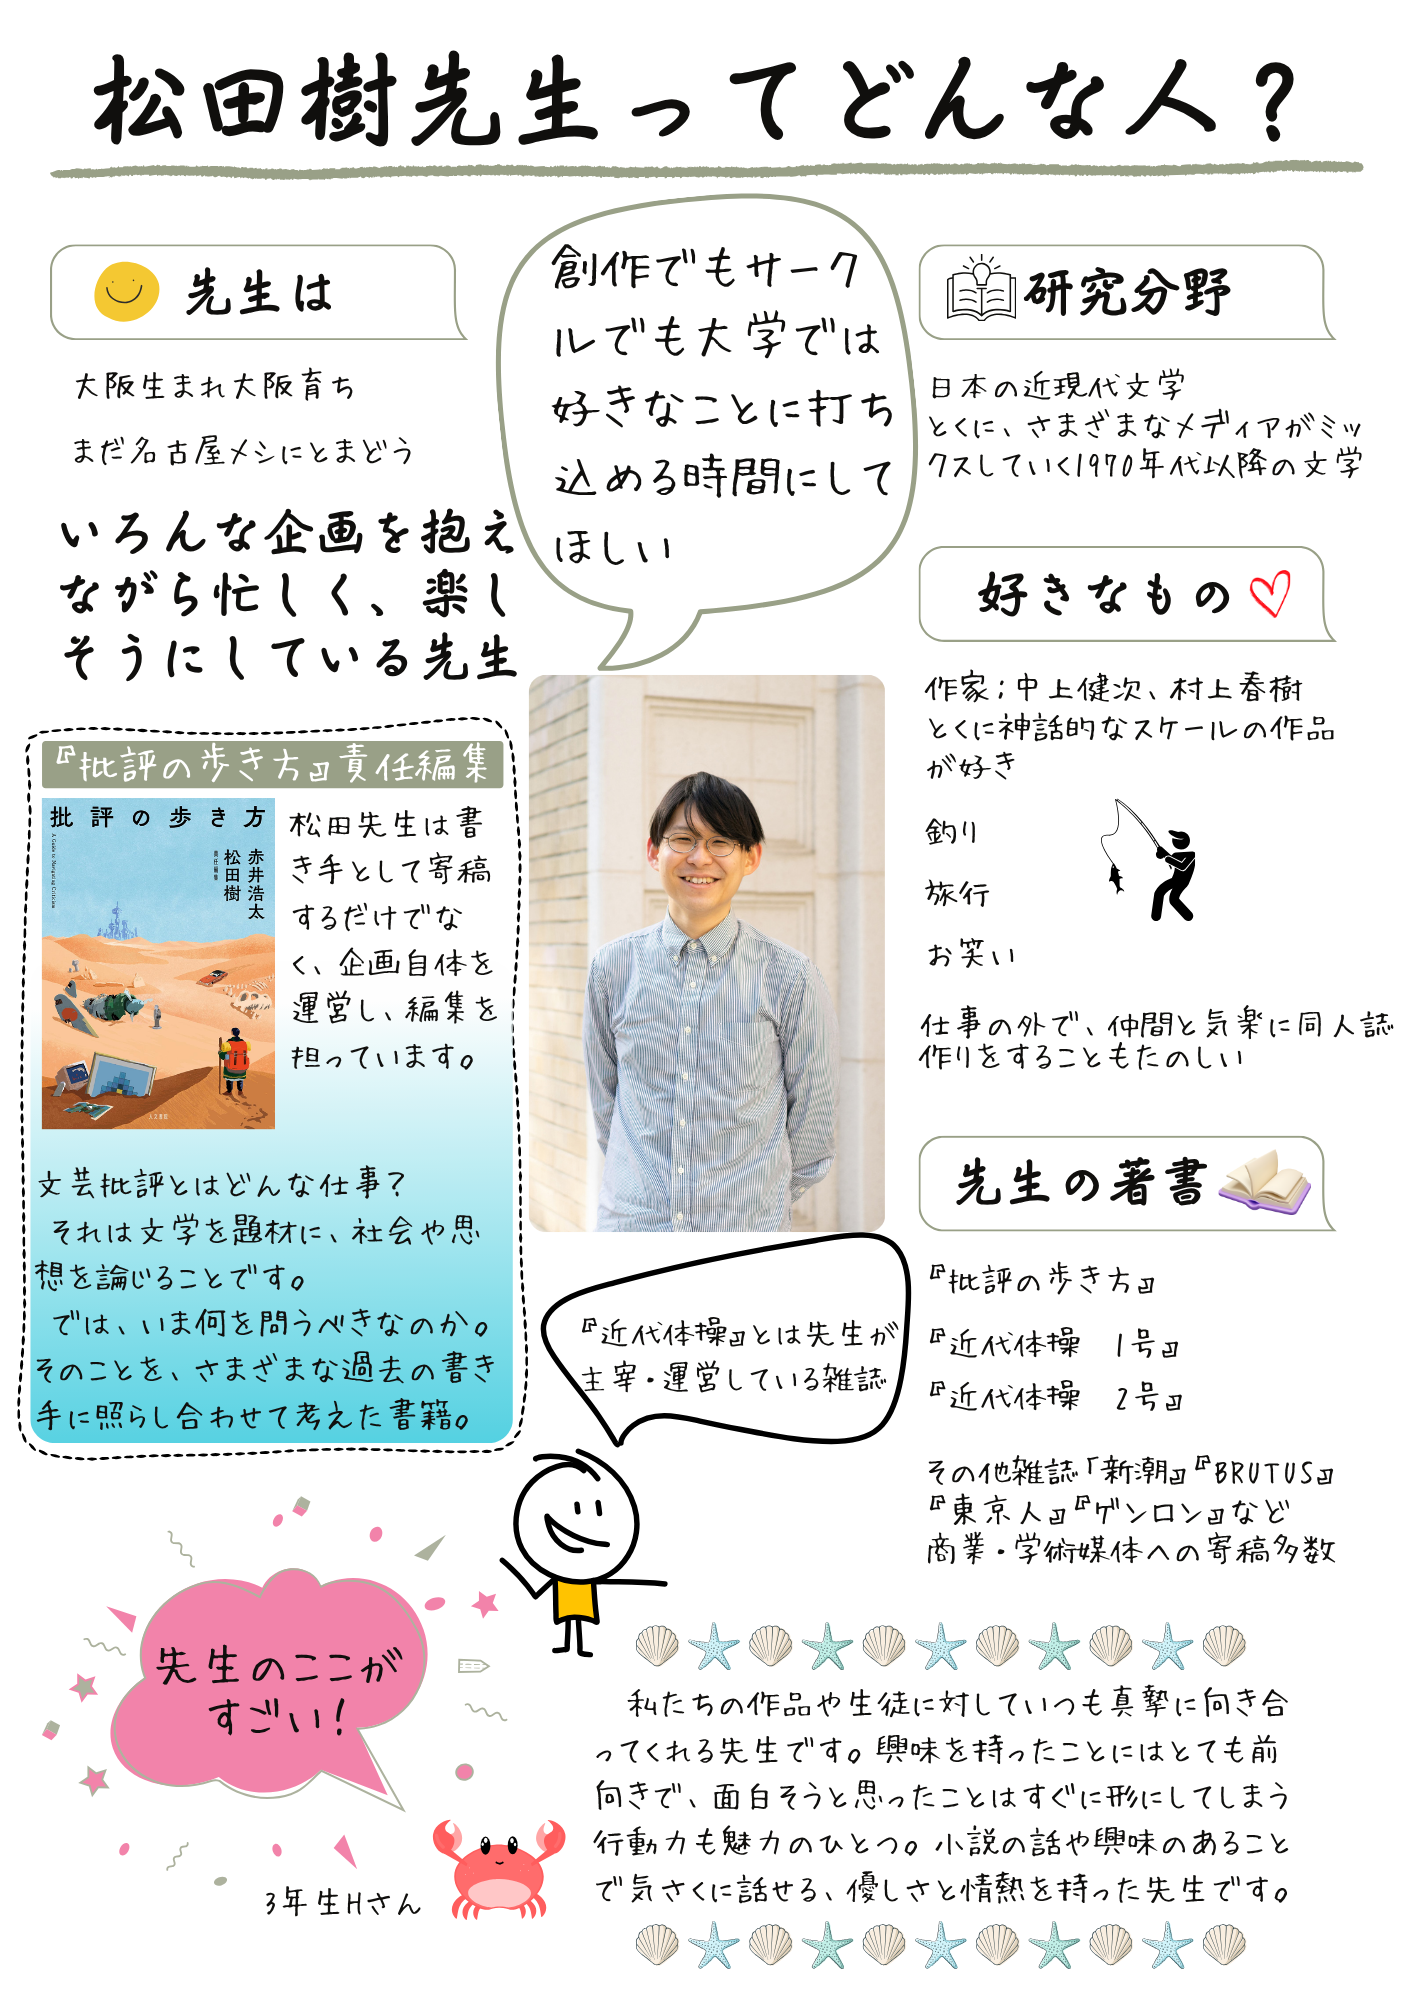 松田樹先生ってどんな人？
先生は
大阪生まれ大阪育ち
まだ名古屋メシにとまどう
いろんな企画を抱え
ながら忙しく、楽し
そうにしている先生
創作でもサーク
ルでも大学では
好きなことに打ち
込める時間にして
ほしい
研究分野
日本の近現代文学
とくに、さまざまなメディアがミッ
クスしていく1970年代以降の文学
好きなもの
作家；中上健次、村上春樹
とくに神話的なスケールの作品
が好き
釣り
旅行
お笑い
仕事の外で、仲間と気楽に同人誌
作りをすることもたのしい
『批評の歩き方』責任編集
批評の歩き方
A Guide to Navigating Criticism
赤井浩太
松田樹
責任編集
人文書院
松田先生は書
き手として寄稿
するだけでな
く、企画自体を
運営し、編集を
担っています。
文芸批評とはどんな仕事？
それは文学を題材に、社会や思
想を論じることです。
では、いま何を問うべきなのか。
そのことを、さまざまな過去の書き
手に照らし合わせて考えた書籍。
『近代体操』とは先生が
主宰・運営している雑誌
先生の著書
『批評の歩き方』
『近代体操　1号』
『近代体操　2号』
その他雑誌「新潮』『BRUTUS』
『東京人』『ゲンロン』など
商業・学術媒体への寄稿多数
先生のここが
すごい！
3年生Hさん
私たちの作品や生徒に対していつも真摯に向き合
ってくれる先生です。興味を持ったことにはとても前
向きで、面白そうと思ったことはすぐに形にしてしまう
行動力も魅力のひとつ。小説の話や興味のあること
で気さくに話せる、優しさと情熱を持った先生です。